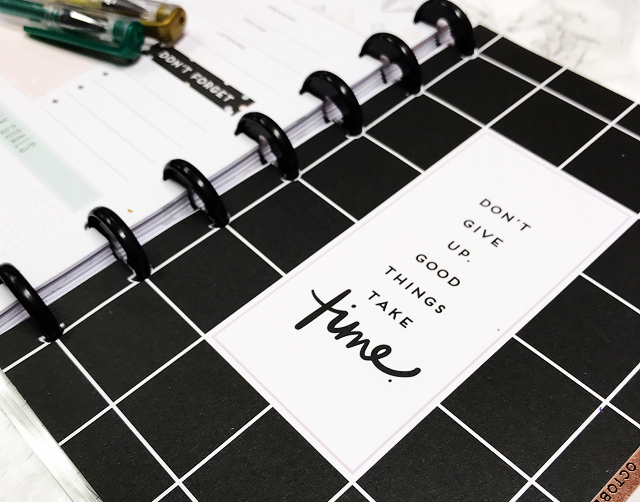 DON'T FORGET
GOALS
DON'T
GIVE
UP.
GOOD
THINGS
TAKE
time.
OCTOB